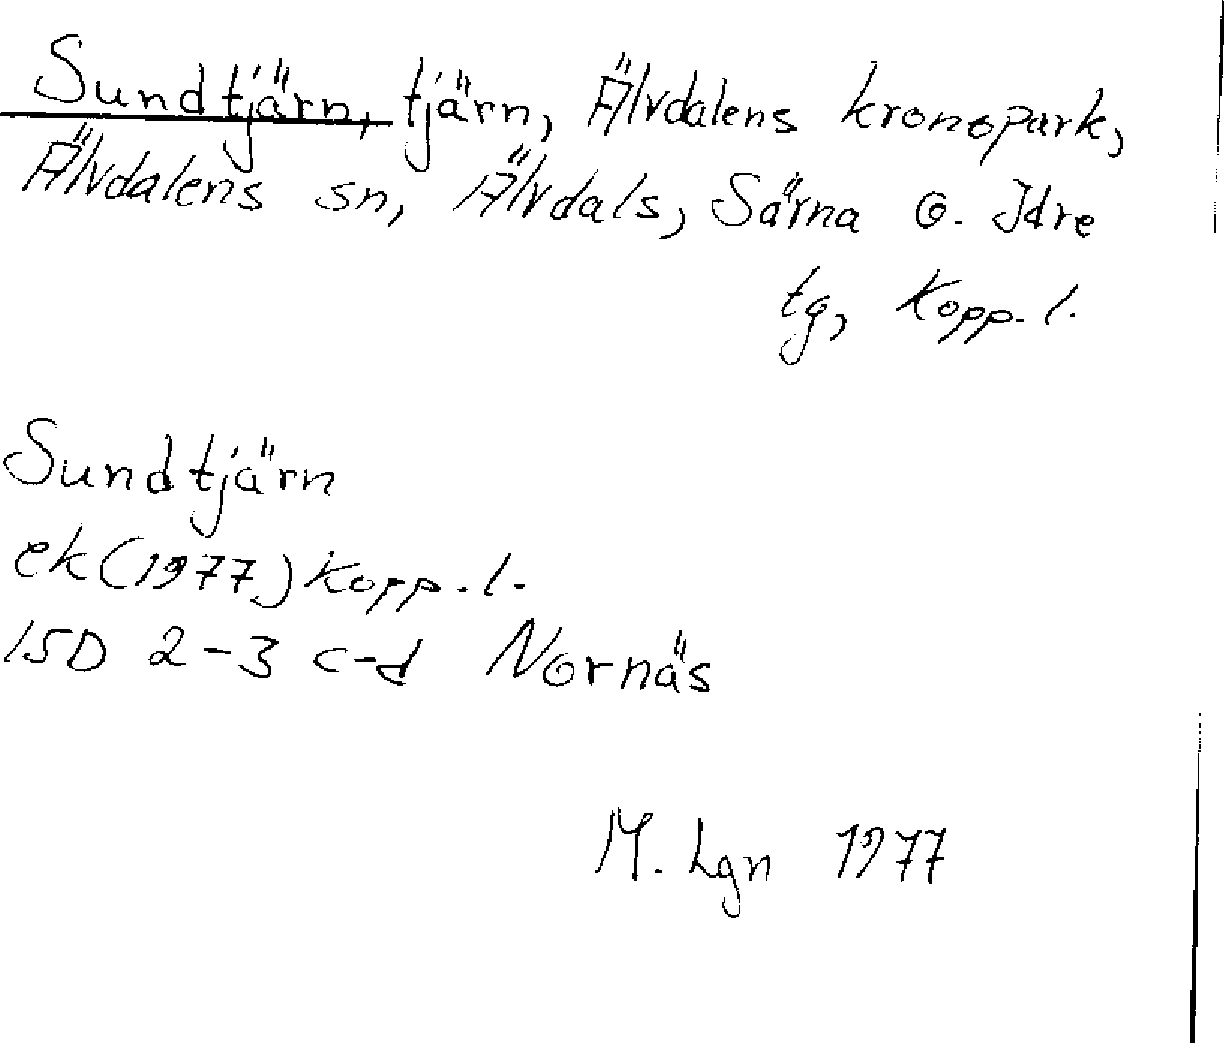 Sundtjärn, tjärn, Älvdalens kronopark,
Älvdalens sn, Älvdals, Särna o. Idre
tg, Kopp. l.
Sundtjärn
ek (1977) Kopp. l.
15D 2-3 c-d Nornäs
M. Lgn 1977